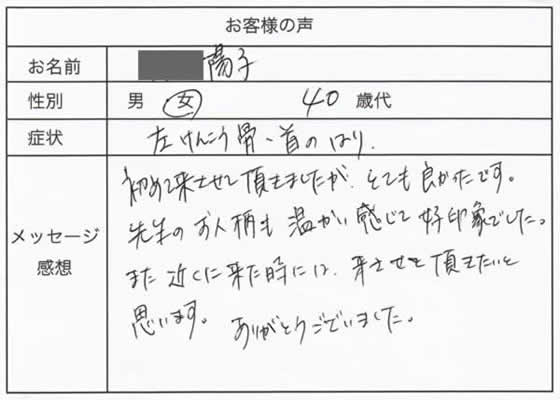 お客様の声
お名前 陽子
性別 男 女 40 歳代
症状 左けんこう骨、首のはり.
メッセージ
感想
初めて来させて頂きましたが、とても良かったです。
先生のお人柄も温かい感じで好印象でした。
また近くに来た時には、来させて頂きたいと
思います。ありがとうございました。